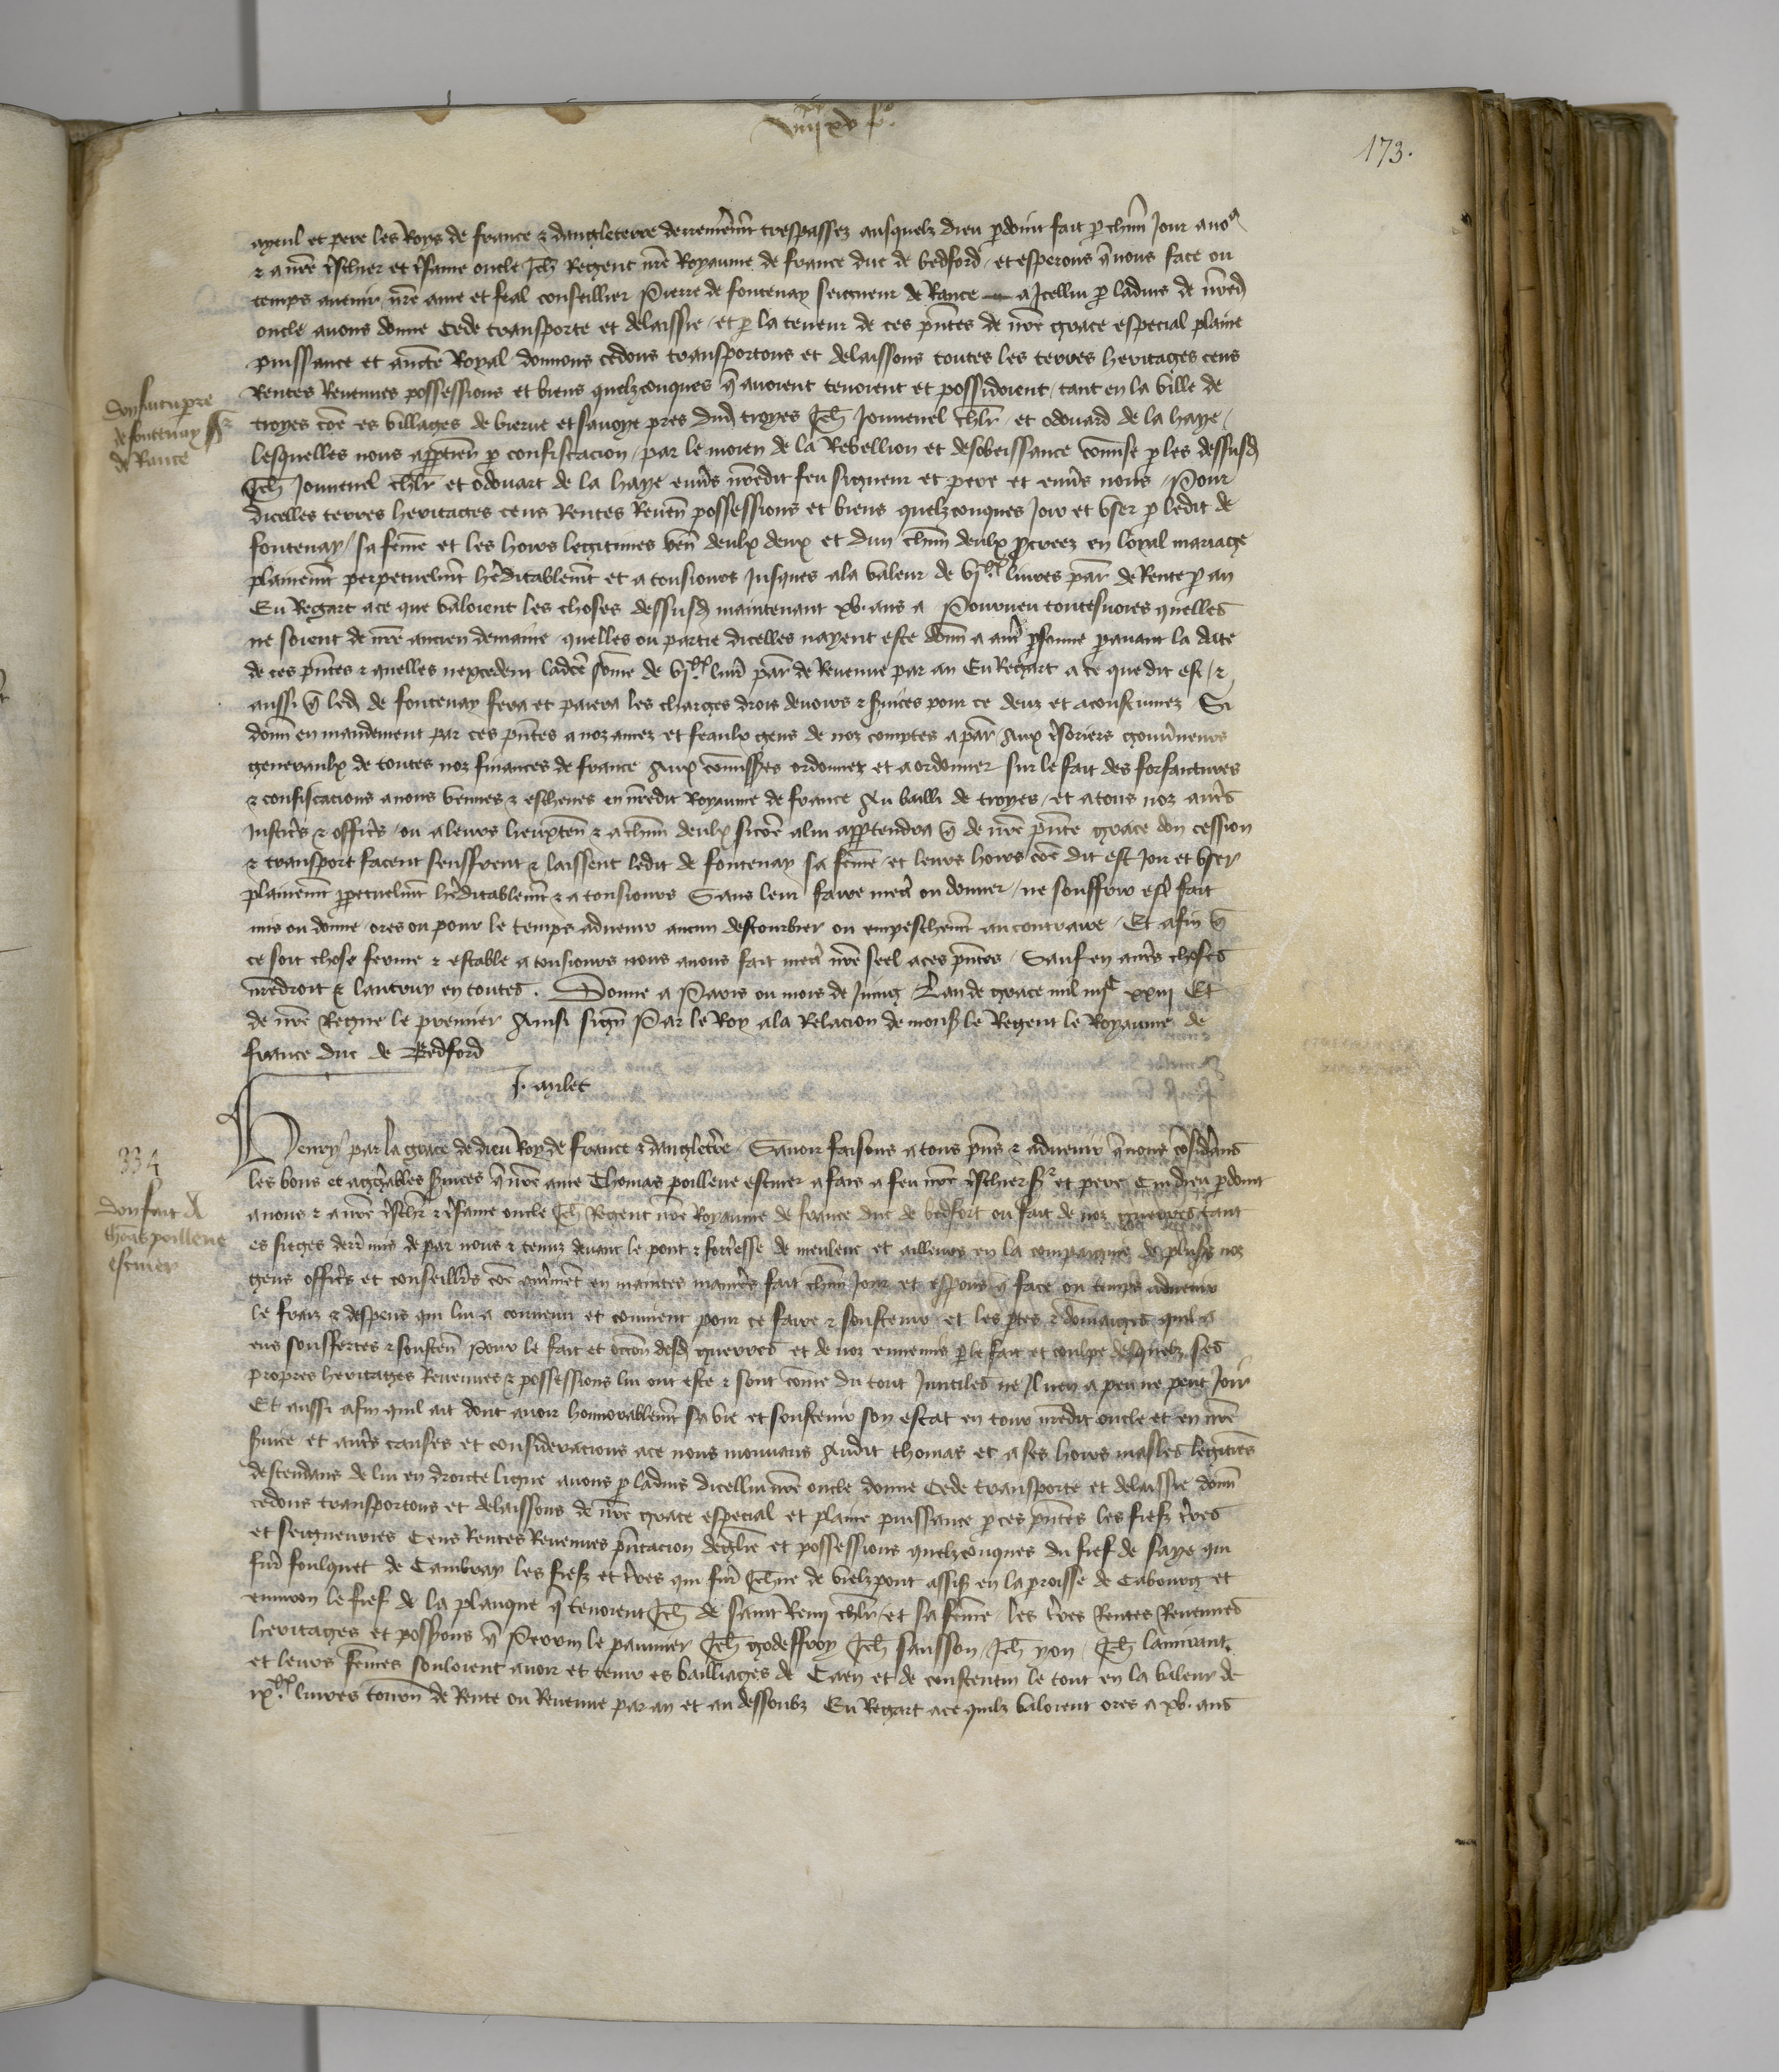 173.
ayeul et pere les Roys de france & dangleterre derrenierem̄t trespassez ausquelz dieu p̱doint fait p̱ ch̄un Jour a no9
& a nr̄e tˢchier et tˢame oncle Jeh̄ Regent nr̄e Royaume de france duc de bedford / et esperons q̄ nous face ou
temps auenir nr̄e ame et feal conseillier Pierre de fontenay seigneur de Rance a Jcellui p̱ laduis de nr̄ed
oncle auons donne Cede transporte et delaissie / et p̱ la teneur de ces p̄ntes de nr̄e grace especial plaine
puissance et auctē Royal donnons cedons transportons et delaissons toutes les terres heritages cens
Rentes Reuenues possessions et biens quelzconques q̄ auoient tenoient et possidoient / tant en la ville de
troyes cōe es villages de vierue et sauoye pres dud troyes Jeh̄ Jouuenel chlr̄ / et odouard de la haye /
Don fait a p̱re
de fontenay sr̄
de Rance
lesquelles nous app̱tien̄ p̱ confiscacion / par le moien de la Rebellion et desobeissance cōmise p̱ les dessusd
Jeh̄ Jouuenel chlr̄ et Odouart de la haye enuˢs nr̄edit feu signeur et pere et enuˢs nous / Pour
dicelles terres heritages cens Rentes Reuen̄ possessions et biens quelzconques Joir et vser p̱ ledit de
fontenay / sa fēme et les hoirs legitimes ven̄ deulx deux et dun ch̄un deulx p̱creez en loyal mariage
plainem̄t perpetuelm̄t hˢditablem̄t et a tousiours Jusques ala valeur de vjxx liures par̄ de Rente p̱ an
Eu Regart ace que valoient les choses dessusd maintenant xv. ans a Pourueu toutesuoies quelles
ne soient de nr̄e ancien demaine / quelles ou partie dicelles nayent este don̄ a autˢ p̱sonne p̱auant la date
de ces p̄ntes & quelles nexcedent ladc̄e sōme de vjxx liuˢ par̄ de Reuenue par an Eu Regart a ce que dit est / &
aussi q̄ led de fontenay fera et paiera les charges drois deuoirs & s̱uices pour ce deuz et acoustumez Si
don̄ en mandement par ces p̄ntes a noz amez et feaulx gens de noz comptes a par̄ Aux tˢsoriers gouu̱neurs
generaulx de toutes noz finances de france Aux cōmiss̱es ordonnez et a ordonner sur le fait des forfaictures
& confiscacions a nous venues & escheues en nr̄edit Royaume de france Au bailli de troyes / et atous noz autˢs
Justicˢs & officˢs / ou aleurs lieuxten̄ & a ch̄un deulx sicōe a lui app̱tendra q̄ de nr̄e p̄nte grace don cession
& transport facent seuffrent & laissent ledit de fontenay sa fēme / et leurs hoirs cōe dit est Joir et vser
plainem̄t p̱petuelm̄t hˢditablem̄t & a tousiours Sans leur faire metˢ ou donner / ne souffrir estˢ fait
mis ou donne / ores ou pour le temps aduenir aucun destourbier ou empeschem̄t au contraire / Et afin q̄
ce soit chose ferme & estable a tousiours nous auons fait metˢ nr̄e seel aces p̄ntes / Sauf en autˢs choses
nr̄edroit & lautruy en toutes. Donne a Paris ou mois de Juing Lan de grace mil iiijc xxiij Et
de nr̄e Regne le premier Ainsi sign̄ Par le Roy ala Relacion de mons̱ le Regent le Royaume de
france duc de Bedford
J. anlet
Henry par la grace de dieu Roy de france & dangletˢre / Sauoir faisons a tous p̄ns & aduenir q̄ nous cōsidˢans
334
Don fait A
Thōas poilleue
escuier
les bons et aggˢables s̱uices q̄ nr̄e ame Thomas poilleue escuier a fais a feu nr̄e tˢschier sr̄ et pere Cui dieu p̱doint
a nous & a nr̄e tˢschr̄ & tˢsame oncle Jeh̄ Regent nr̄e Royaume de france duc de bedfort ou fait de noz guerres tant
es sieges derˢ mis de par nous & tenuz deuant le pont & fortˢesse de meulenc et ailleurs en la compaignie de plus̱s noz
gens officˢs et conseillrs̄ cōe autˢmēt en maintes maniˢes fait ch̄un Jour et esp̱ons q̄ face ou temps aduenir
le fraiz & despens qui lui a conuenu et conuient pour ce faire & soustenir / et les p̱tes & dōmaiges quil a
eus souffertes & sousten̄ Pour le fait et occōn desd guerres et de noz ennemis p̱ le fait et coulpe desquelz ses
propres heritages Reuenues & possessions lui ont este & sont cōme du tout Jnutiles ne Jl nen a peu ne peut Joir
Et aussi afin quil ait dont auoir honnorablem̄t sa vie et soustenir son estat en tour nr̄edit oncle et en nr̄e
s̱uice et autˢs causes et consideracions ace nous mouuans Audit thomas et a ses hoirs masles legitiēs
descendans de lui en droicte ligne auons p̱ laduis dicellui nr̄e oncle donne Cede transporte et delaissie don̄
cedons transportons et delaissons de nr̄e grace especial et plaine puissance p̱ ces p̄ntes les fiefz tˢres
et seigneuries Cens Rentes Reuenues p̄ntacion deglˢe et possessions quelzcōques du fief de saye qui
fuˢ foulquet de Cambray les fiefz et tˢres qui fuˢ Jeh̄ne de vielzpont assiz en la p̱roisse de Cabourg et
enuiron le fief de la planque q̄ tenoient Jeh̄ de saint Remj chlr̄ / et sa fēme / les tˢres Rentes Reuenues
heritages et poss̱ions q̄ Perrin le paumier Jeh̄ godeffroy Jeh̄ sansson / Jeh̄ yon / Jeh̄
et leurs fēmes souloient auoir et tenir es bailliages de Caen et de constentin le tout en la valeur de
ixxx liures tourn̄ de Rente ou Reuenue par an et au dessoubz Eu Regart ace quilz valoient ores a xv. ans